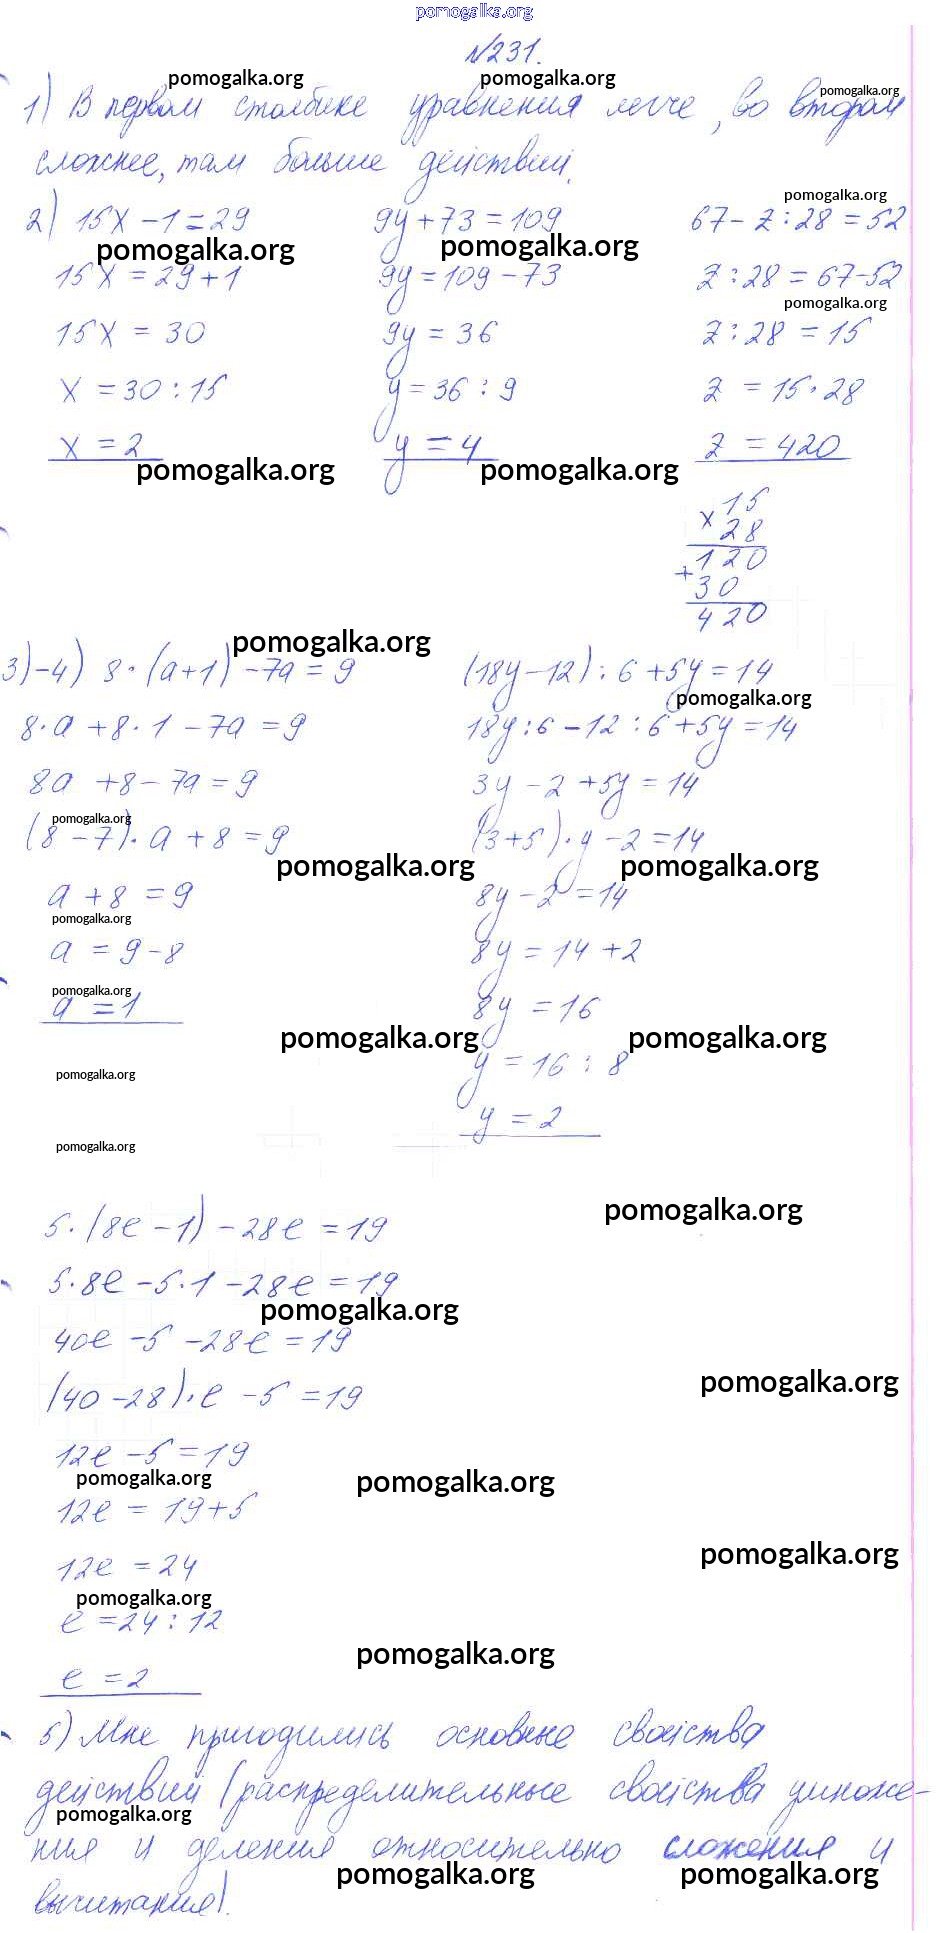 pomogalka.org
№231.
pomogalka.org pomogalka.org pomogalka.org
1) В первом столбике уравнения легче, во втором
сложнее, там больше действий.
pomogalka.org
2) 15x - 1 = 29 9y + 73 = 109 67 - z : 28 = 52
pomogalka.org pomogalka.org
15x = 29 + 1 9y = 109 - 73 z : 28 = 67 - 52
pomogalka.org
15x = 30 9y = 36 z : 28 = 15
x = 30 : 15 y = 36 : 9 z = 15 · 28
x = 2 y = 4 z = 420
pomogalka.org pomogalka.org
x 15
28
120
+ 30
420
pomogalka.org
3)-4) 8 · (a + 1) - 7a = 9 (18y - 12) : 6 + 5y = 14
pomogalka.org
8 · a + 8 · 1 - 7a = 9 18y : 6 - 12 : 6 + 5y = 14
8a + 8 - 7a = 9 3y - 2 + 5y = 14
pomogalka.org
(8 - 7) · a + 8 = 9 (3 + 5) · y - 2 = 14
pomogalka.org pomogalka.org
a + 8 = 9 8y - 2 = 14
pomogalka.org
a = 9 - 8 8y = 14 + 2
pomogalka.org
a = 1 8y = 16
pomogalka.org pomogalka.org
y = 16 : 8
pomogalka.org
y = 2
pomogalka.org
pomogalka.org
5 · (8в - 1) - 28в = 19
5 · 8в - 5 · 1 - 28в = 19
pomogalka.org
40в - 5 - 28в = 19
pomogalka.org
(40 - 28) · в - 5 = 19
12в - 5 = 19
pomogalka.org pomogalka.org
12в = 19 + 5
pomogalka.org
12в = 24
pomogalka.org
в = 24 : 12
pomogalka.org
в = 2
5) Мне пригодились основные свойства
действий (распределительные свойства умноже-
pomogalka.org
ния и деления относительно сложения и
pomogalka.org pomogalka.org
вычитания).